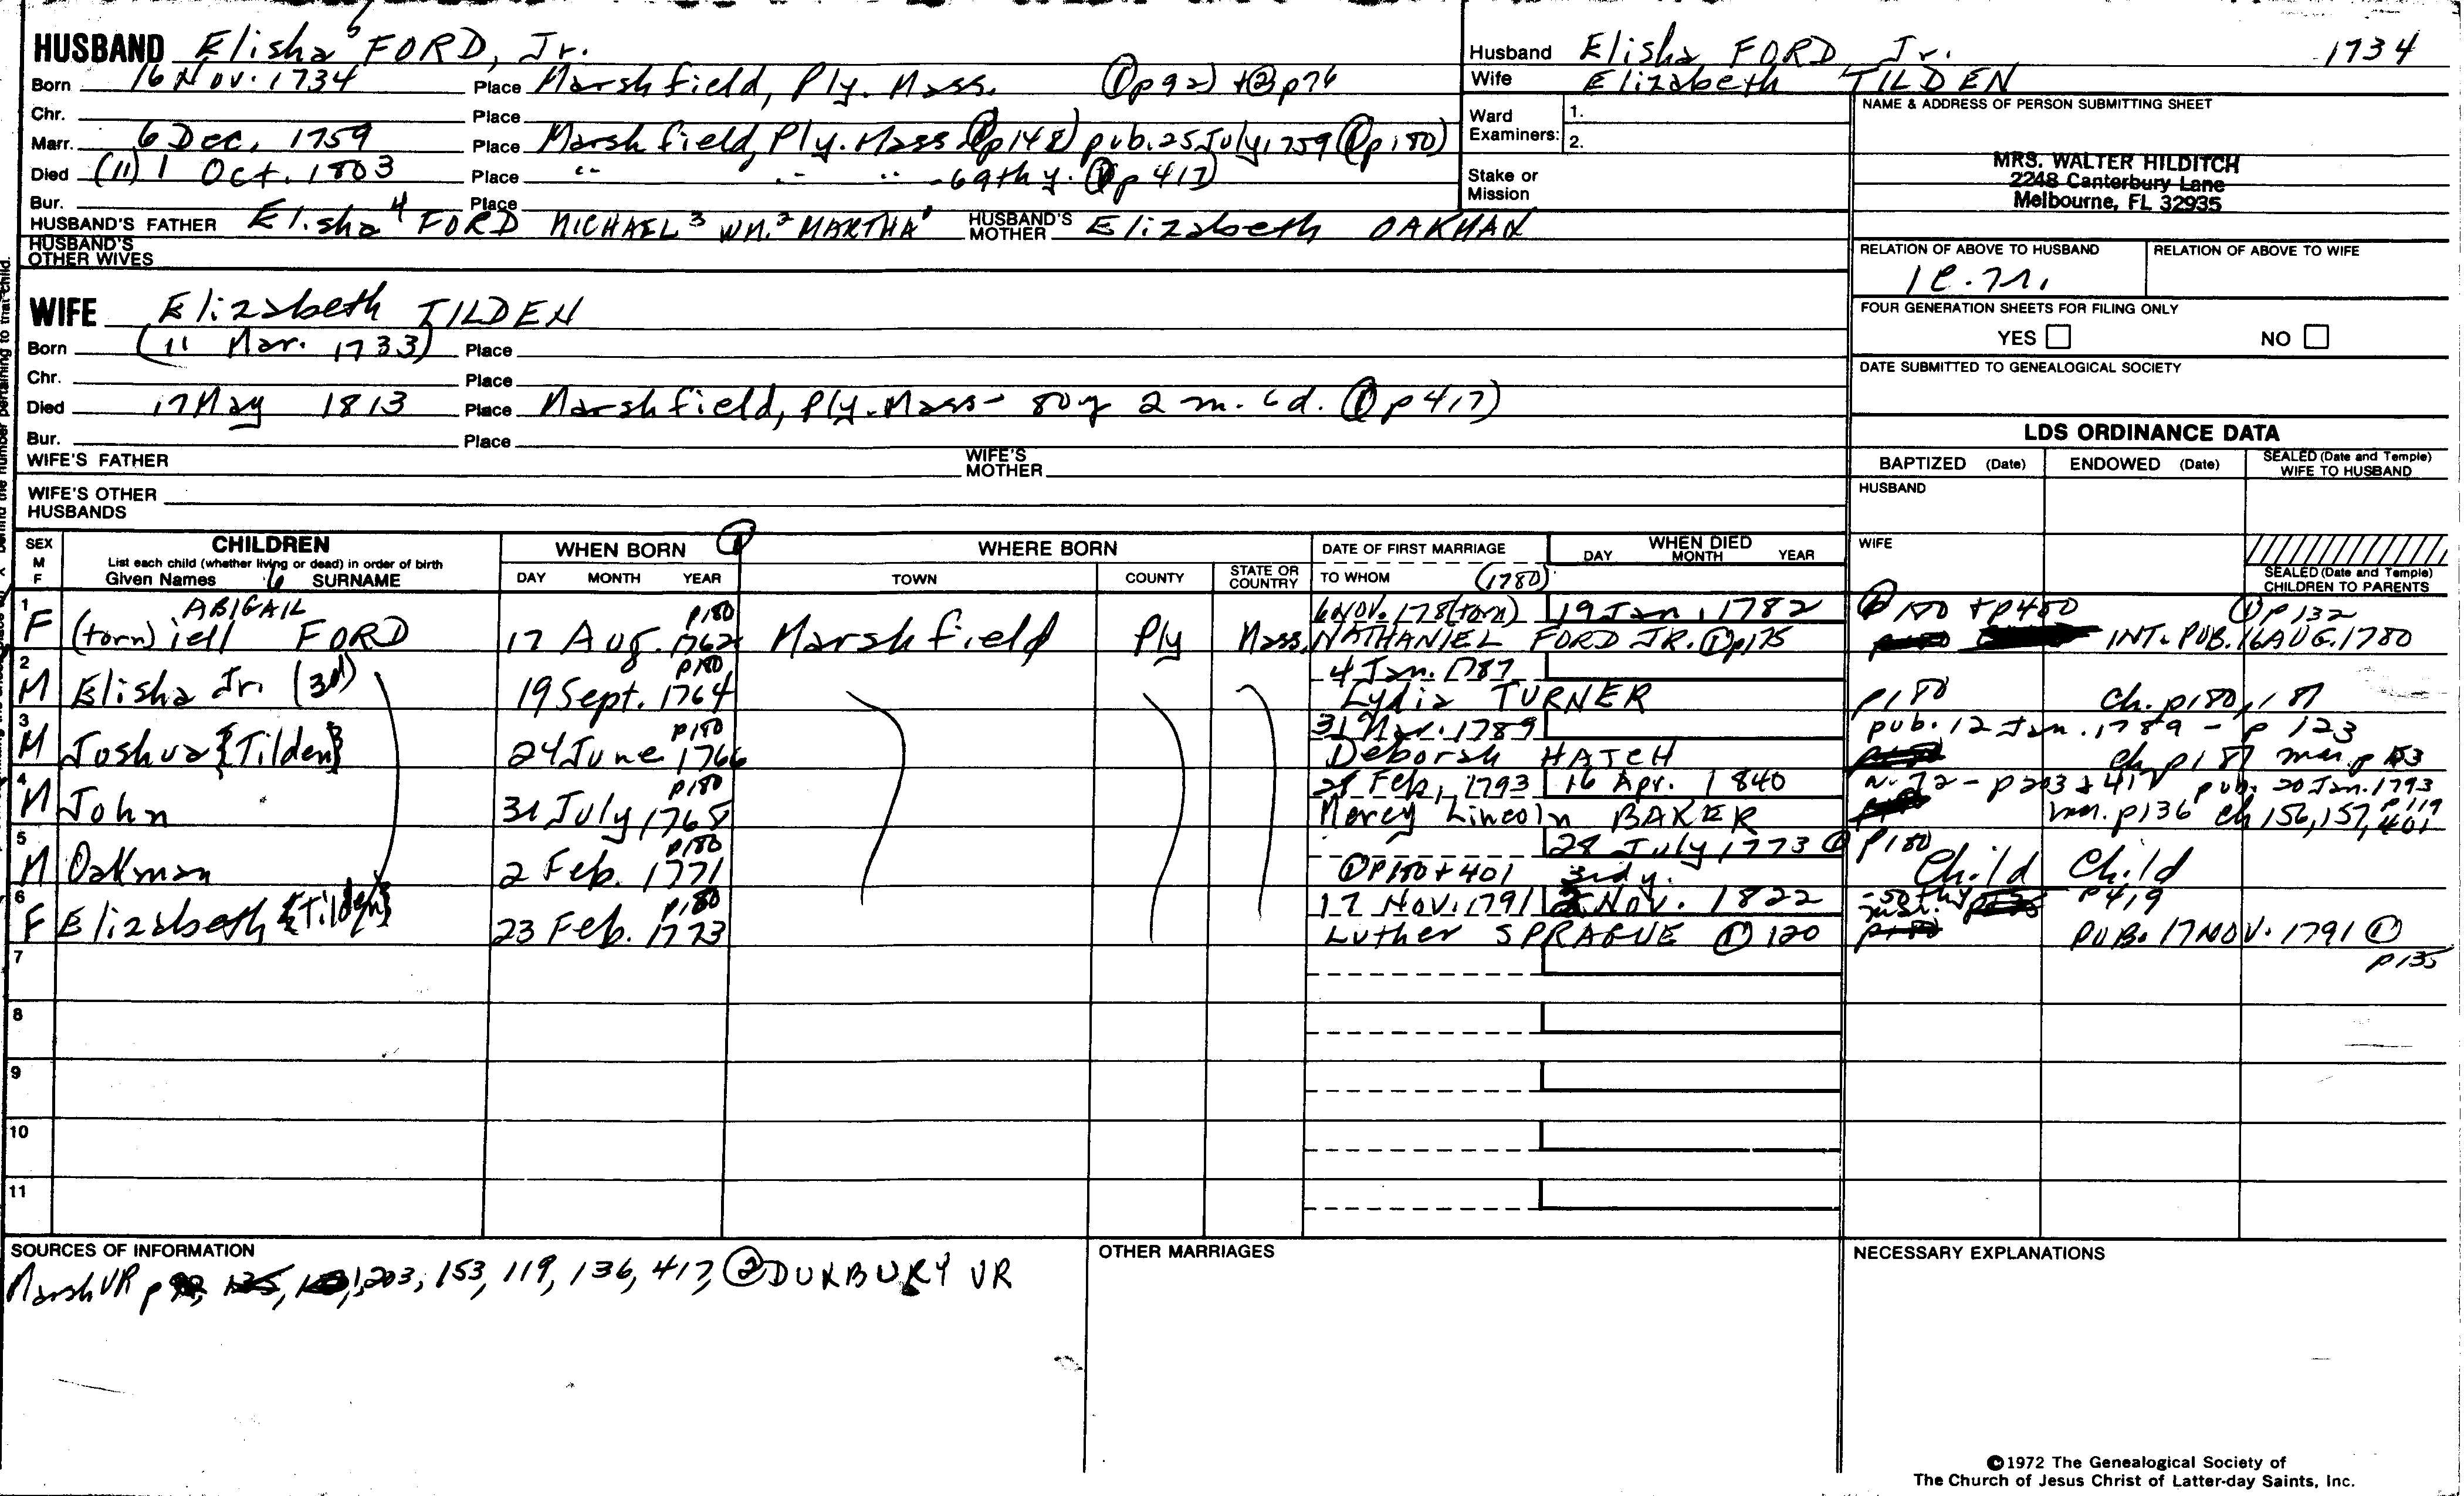 HUSBAND Elisha⁵ FORD, Jr.
Born 16 Nov. 1734 Place Marshfield, Ply. Mass. ① p92) + ② p76
Chr. Place
Marr. 6 Dec. 1759 Place Marshfield, Ply. Mass ① p148) pub. 25 July 1759 ① p180)
Died (11) 1 Oct. 1803 Place " " " - 69th y. ① p417)
Bur. Place
HUSBAND'S FATHER Elisha⁴ FORD MICHAEL³ WM.² MARTHA¹ HUSBAND'S MOTHER Elizabeth OAKMAN
HUSBAND'S OTHER WIVES
Husband Elisha FORD Jr. 1734
Wife Elizabeth TILDEN
Ward Examiners: 1.
2.
Stake or Mission
NAME & ADDRESS OF PERSON SUBMITTING SHEET
MRS. WALTER HILDITCH
2248 Canterbury Lane
Melbourne, FL 32935
RELATION OF ABOVE TO HUSBAND RELATION OF ABOVE TO WIFE
FOUR GENERATION SHEETS FOR FILING ONLY
YES NO
DATE SUBMITTED TO GENEALOGICAL SOCIETY
WIFE Elizabeth TILDEN
Born (11 Mar. 1733) Place
Chr. Place
Died 17 May 1813 Place Marshfield, Ply. Mass - 80y 2 m. 6d. ① p417)
Bur. Place
WIFE'S FATHER WIFE'S MOTHER
WIFE'S OTHER HUSBANDS
LDS ORDINANCE DATA
BAPTIZED (Date) ENDOWED (Date) SEALED (Date and Temple) WIFE TO HUSBAND
HUSBAND
WIFE
SEALED (Date and Temple) CHILDREN TO PARENTS
SEX M F CHILDREN WHEN BORN ① WHERE BORN DATE OF FIRST MARRIAGE WHEN DIED
List each child (whether living or dead) in order of birth
Given Names 6 SURNAME DAY MONTH YEAR TOWN COUNTY STATE OR COUNTRY TO WHOM (1780) DAY MONTH YEAR
1 ABIGAIL p180 6 Nov. 178(torn) 19 Jan. 1782 ① p180 + p400 ① p132
F (torn) iell FORD 17 Aug. 1762 Marshfield Ply Mass. NATHANIEL FORD JR. ① p175 INT. PUB. 16 AUG. 1780
2 p180 4 Jan. 1787
M Elisha Jr. (3d) 19 Sept. 1764 Lydia TURNER p180 Ch. p180, 181
3 p180 31 Mar. 1789 pub. 12 Jan. 1789 - p 123
M Joshua {Tilden} 24 June 1766 Deborah HATCH ch p187 mar. p 153
4 p180 28 Feb. 1793 16 Apr. 1840 p203 + 417 pub. 20 Jan. 1793 p119
M John 31 July 1768 Mercy Lincoln BAKER mar. p136 ch 156, 157, 401
5 p180 28 July 1773 ① p180
M Oakman 2 Feb. 1771 ① p180 + 401 3rd y. Child Child
6 p180 17 Nov. 1791 2 Nov. 1822 - 50th y p419
F Elizabeth {Tilden} 23 Feb. 1773 Luther SPRAGUE ① 120 PUB. 17 NOV. 1791 ① p135
7
8
9
10
11
SOURCES OF INFORMATION
Marsh VR p 203, 153, 119, 136, 417, ② DUXBURY VR
OTHER MARRIAGES
NECESSARY EXPLANATIONS
©1972 The Genealogical Society of
The Church of Jesus Christ of Latter-day Saints, Inc.